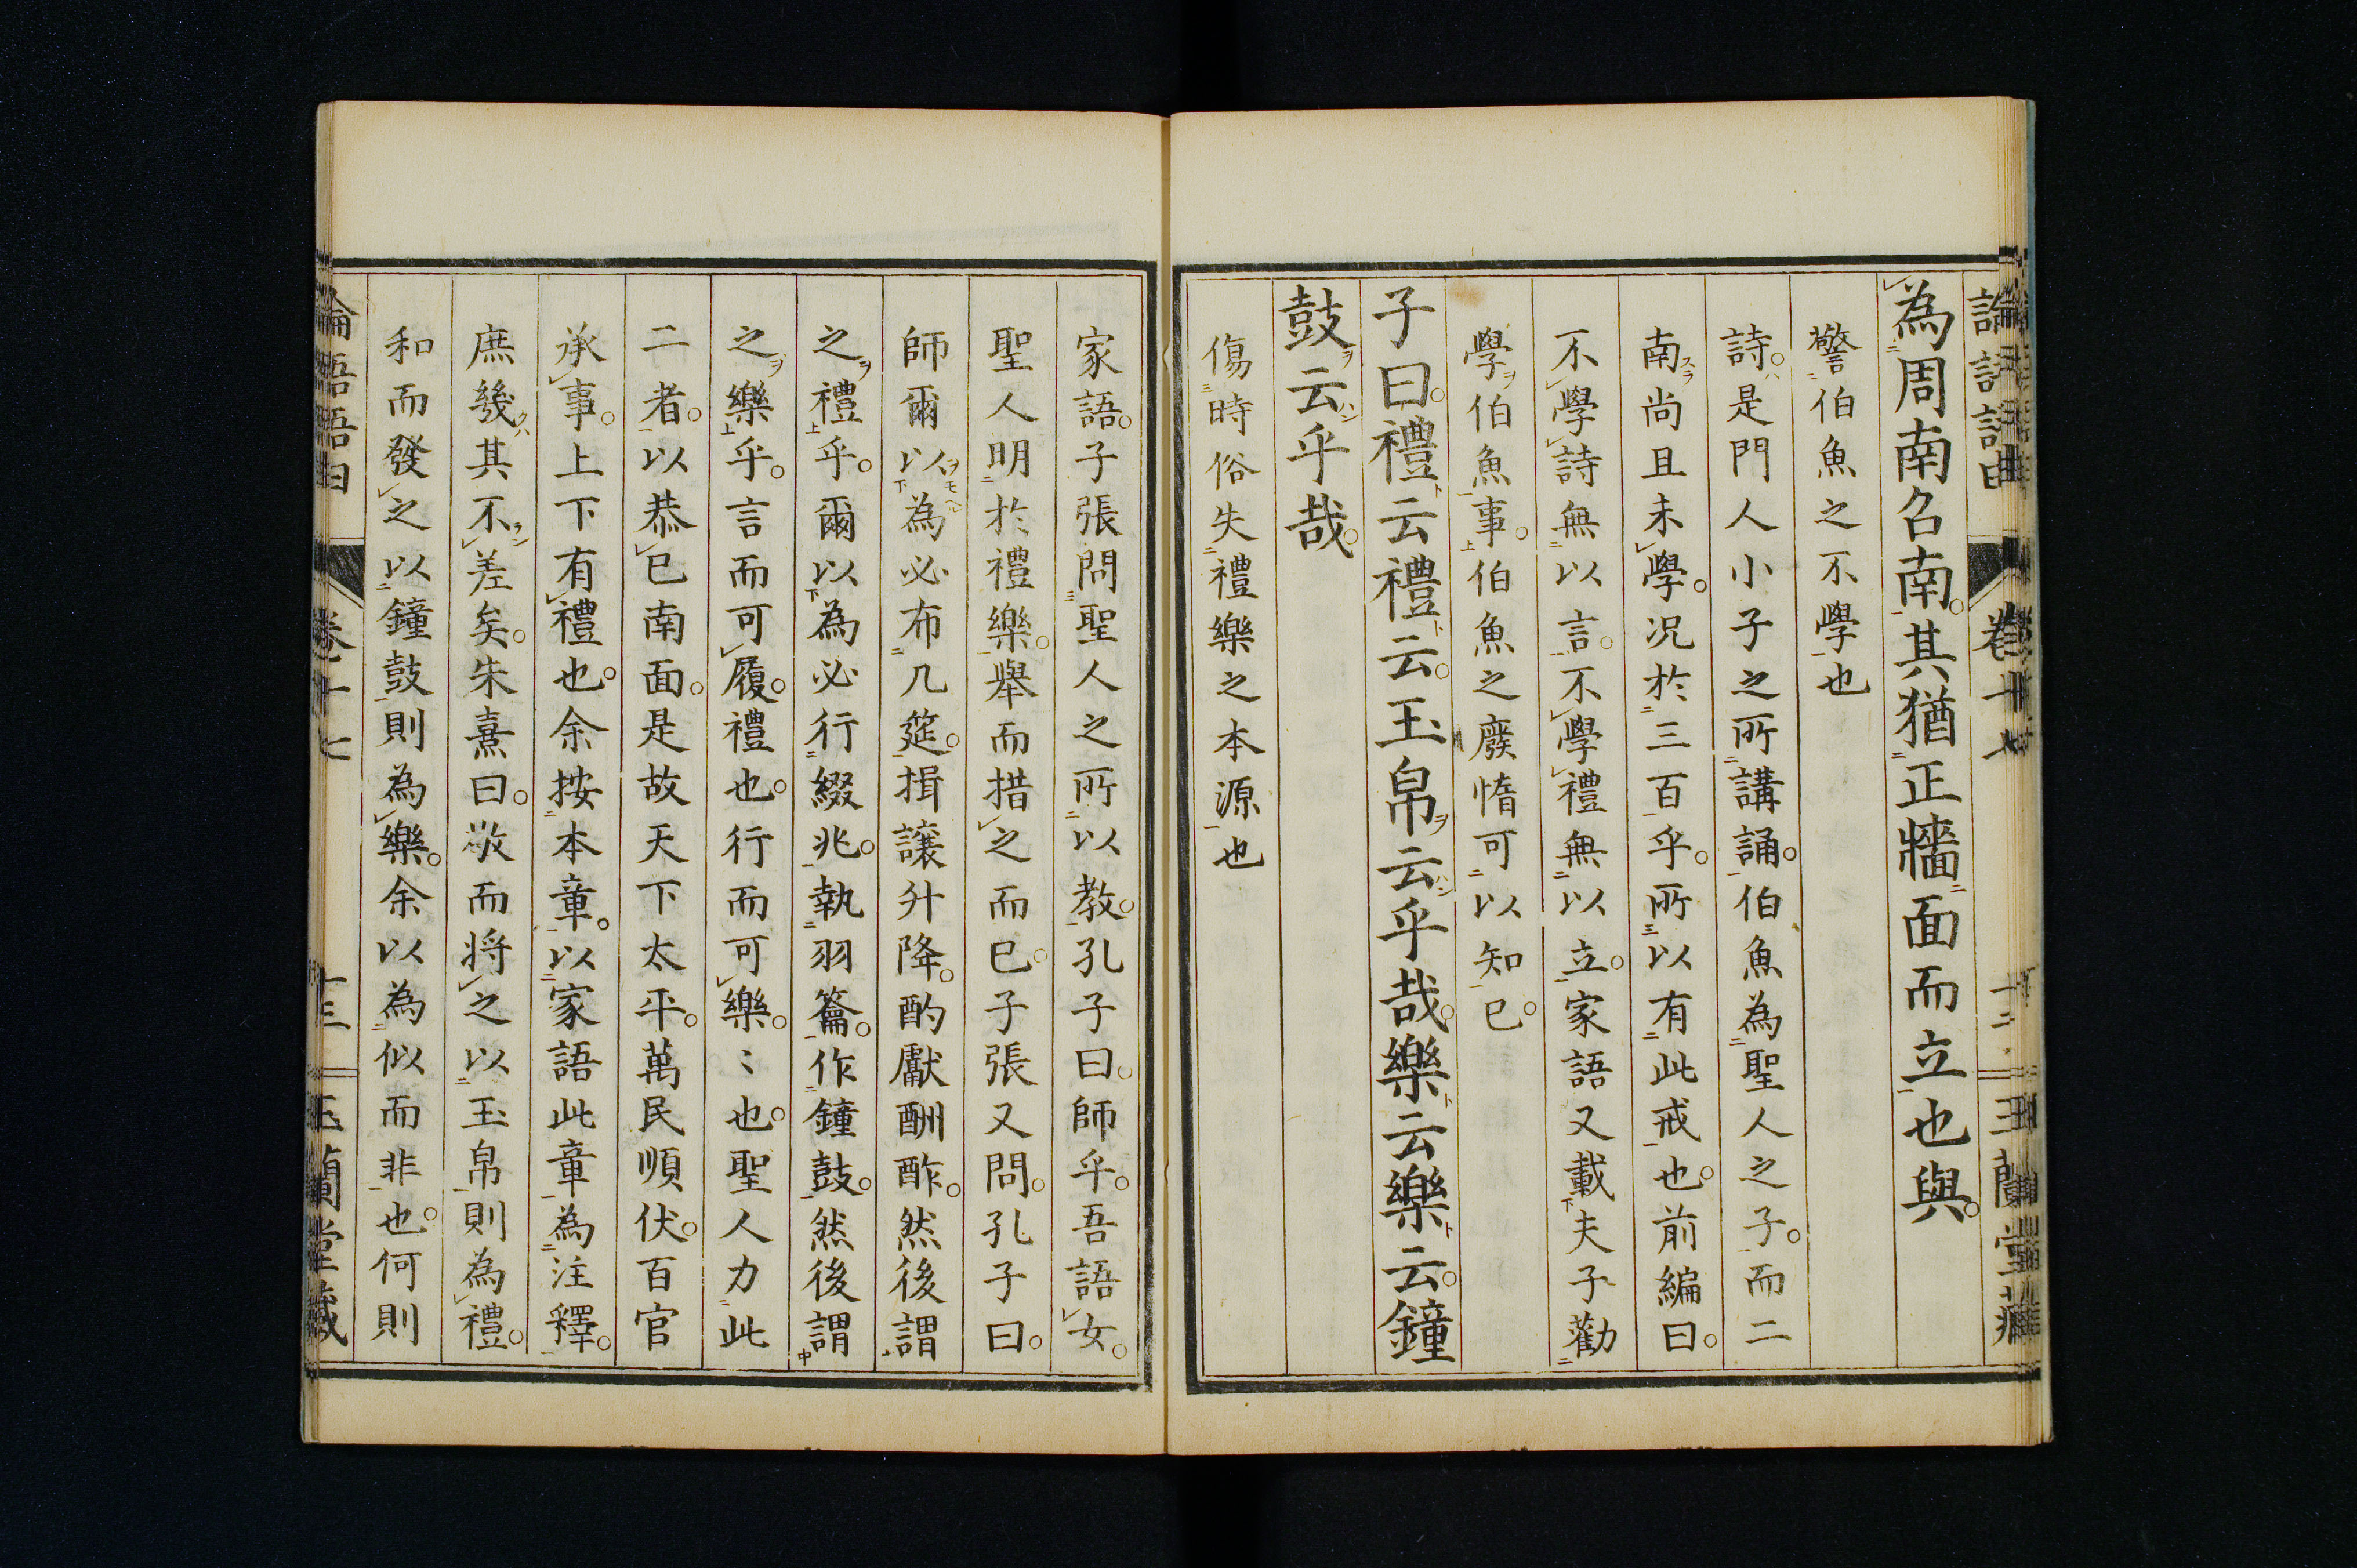 為周南召南。其猶正牆面而立也與。
警伯魚之不學也
詩。是門人小子之所講誦。伯魚為聖人之子。而二
南尚且未學。況於三百乎。所以有此戒也。前編曰。
不學詩無以言。不學禮無以立。家語又載夫子勸
學伯魚事。伯魚之廢惰可以知已。
子曰。禮云禮云。玉帛云乎哉。樂云樂云。鐘
鼓云乎哉。
傷時俗失禮樂之本源也
家語。子張問聖人之所以教。孔子曰。師乎。吾語女。
聖人明於禮樂。舉而措之而已。子張又問。孔子曰。
師爾以為必布几筵。揖讓升降。酌獻酬酢。然後謂
之禮乎。爾以為必行綴兆。執羽籥。作鐘鼓。然後謂
之樂乎。言而可履。禮也。行而可樂。〻也。聖人力此
二者。以恭已南面。是故天下太平。萬民順伏。百官
承事。上下有禮也。余按本章。以家語此章為注釋。
庶幾其不差矣。朱熹曰。敬而將之以玉帛則為禮。
和而發之以鐘鼓則為樂。余以為似而非也。何則
卷十七
十三
玉蘭堂藏